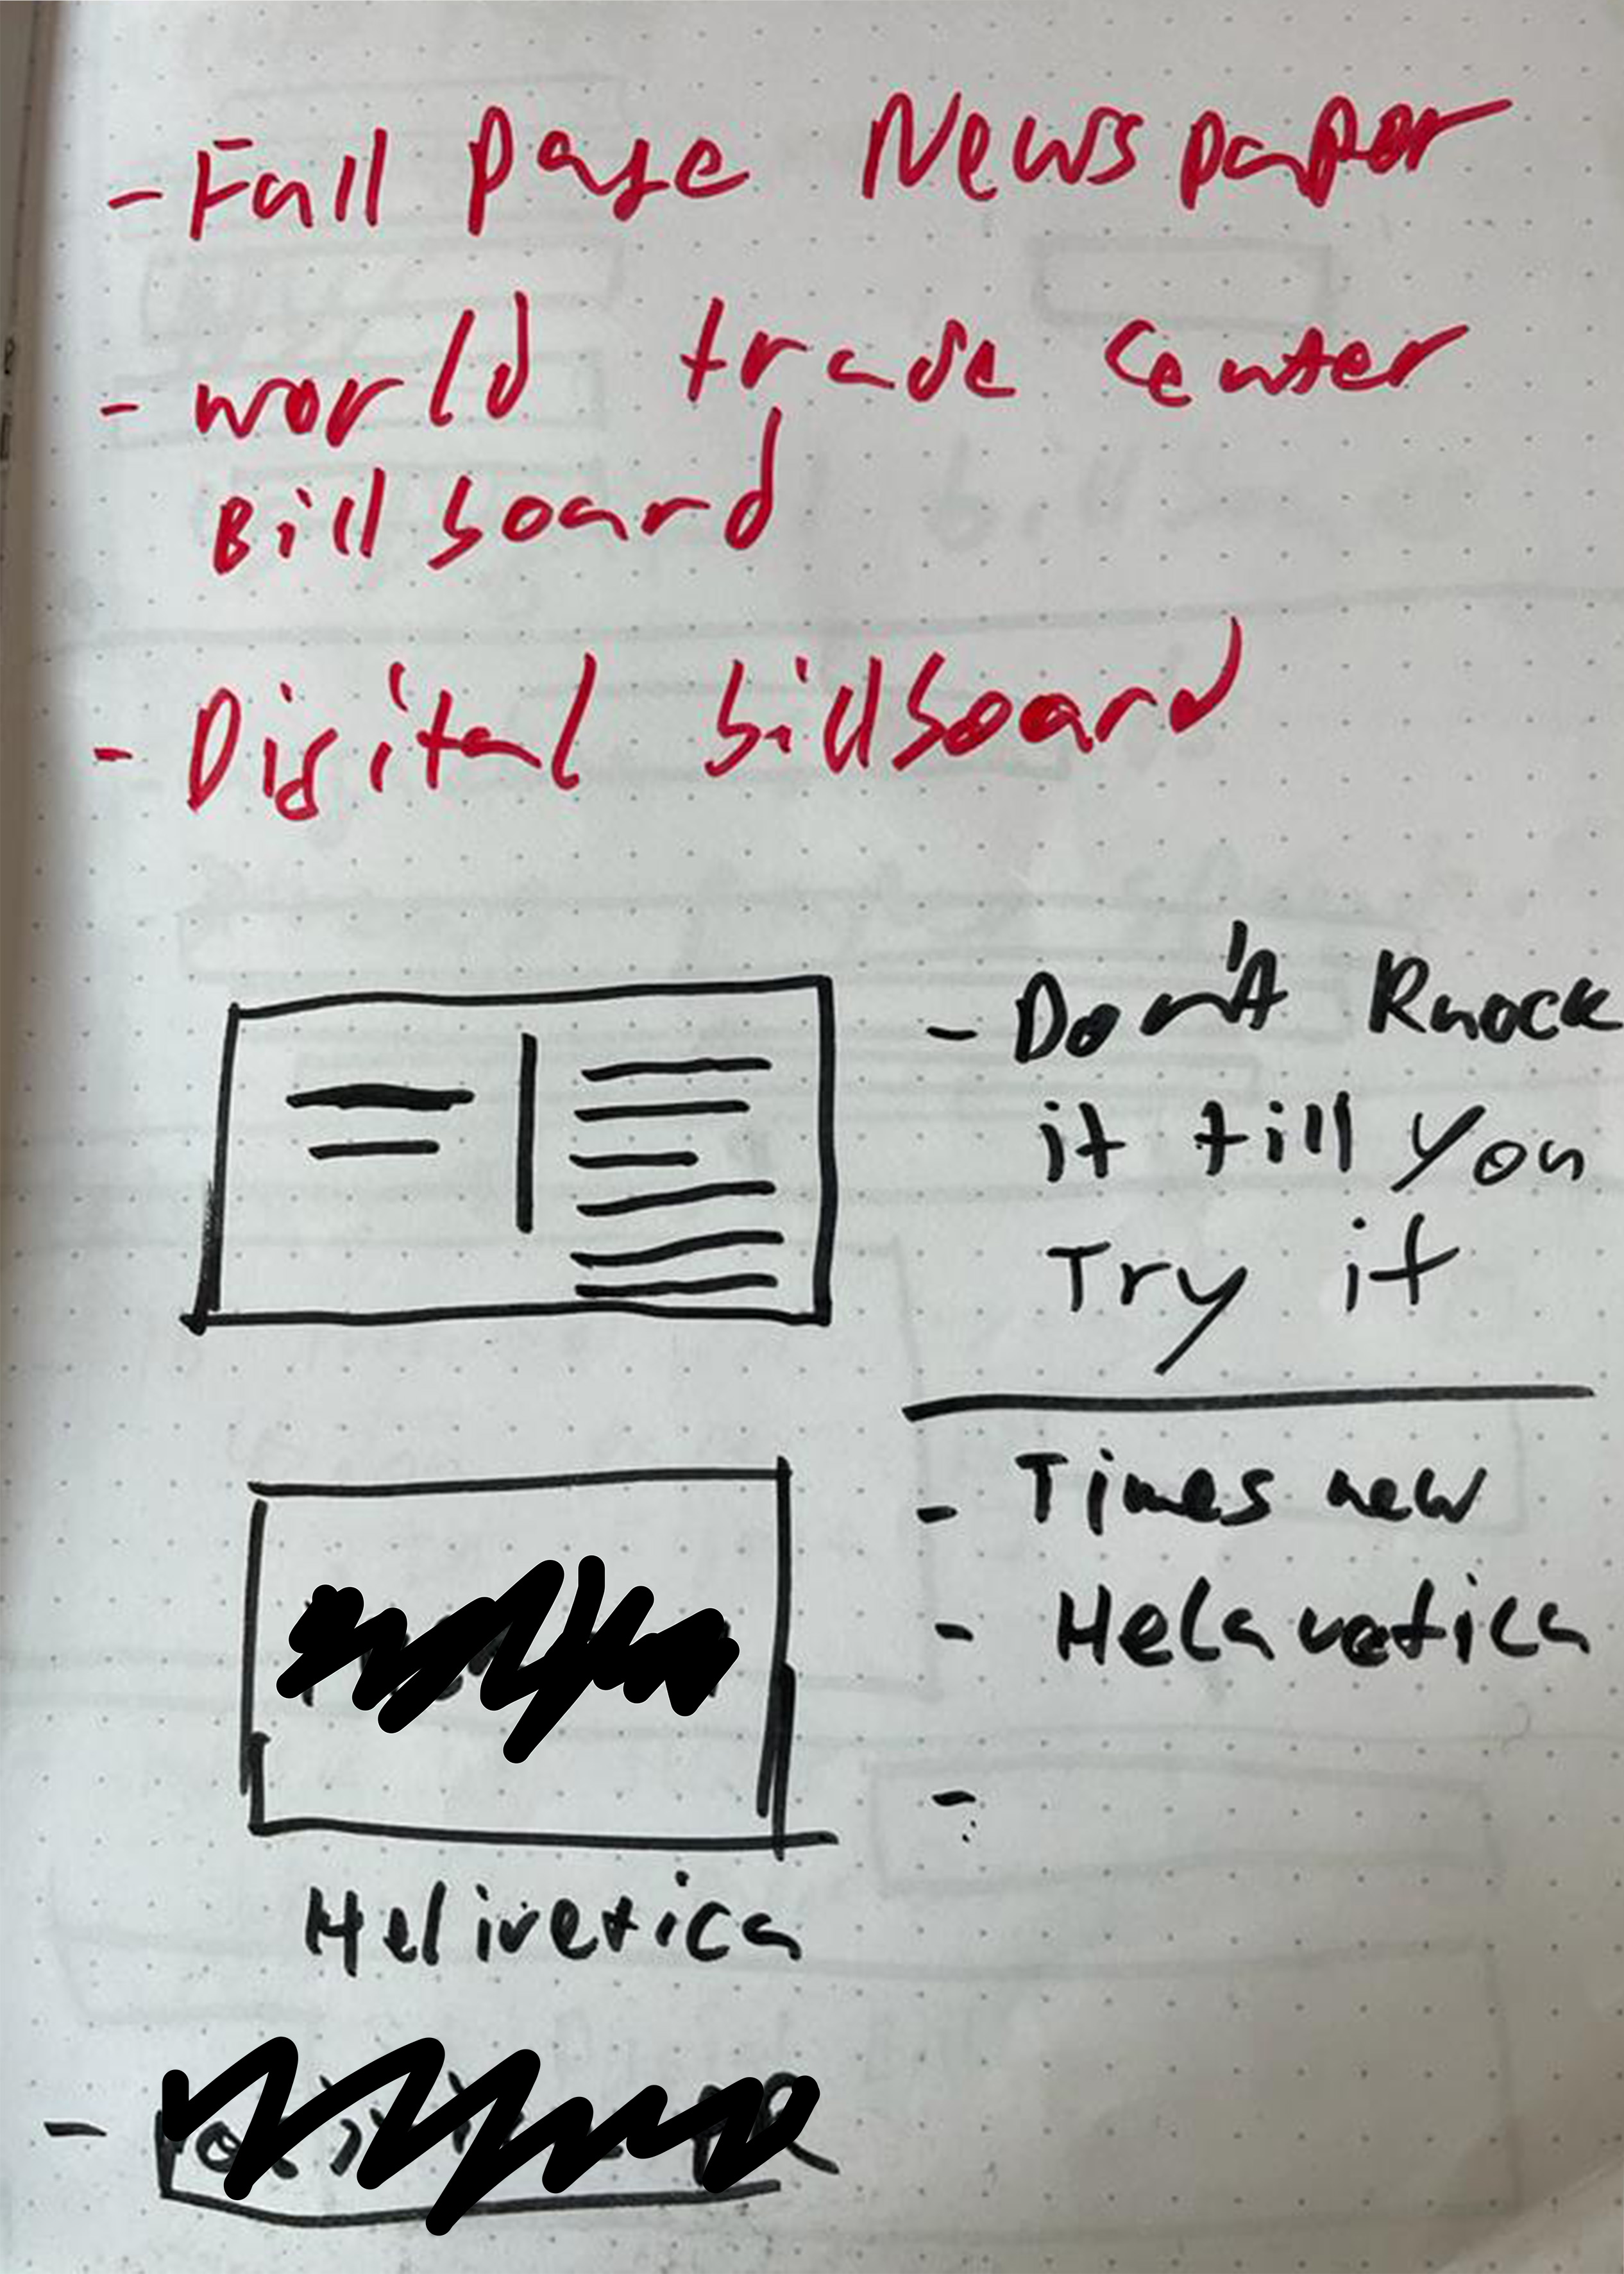 - Full page Newspaper
- world trade center
Billboard
- Digital billboard
- Don't Knock
it till you
Try it
- Times new
- Helavetica
-
Helivetica
-